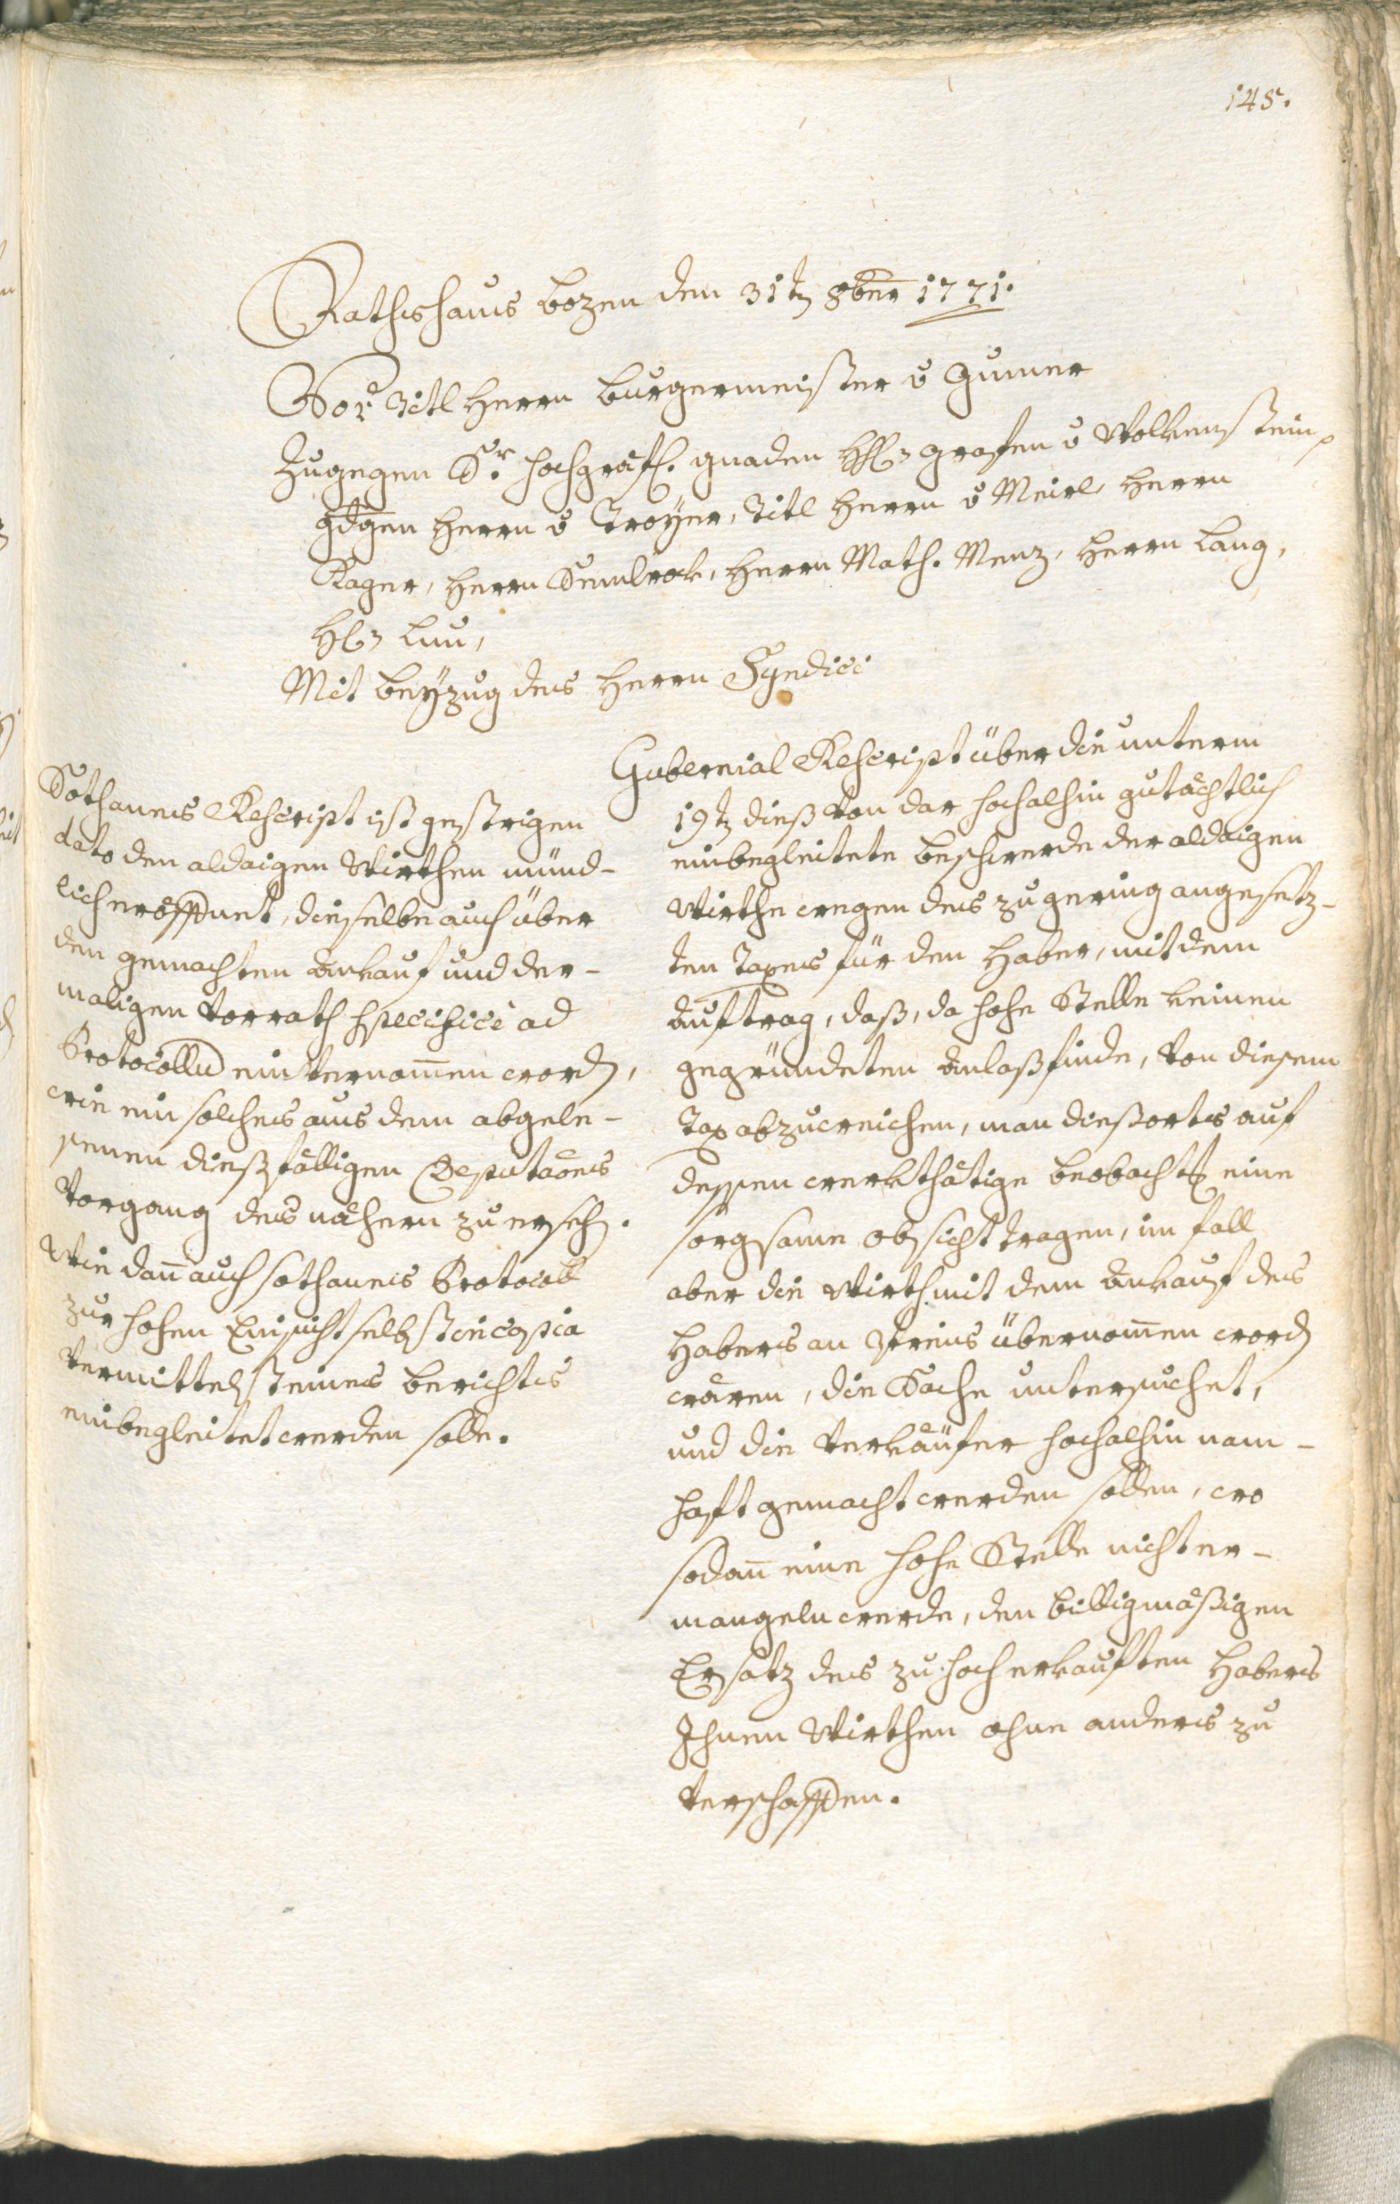 145.
Rathshaus bozen den 31t 8ber 1771.
Vor Titl Herrn burgermeister v Gumer
Zugegen Sr. hochgräfl. gnaden Grafen v Wolkenstein
Herrn v Troÿer, Titl Herrn v Meirl, Herrn
Kager, Herrn Semlrock, Herrn Math. Menz, Herrn Lang,
Mit beÿzug des Herrn Syndici
Gubernial Rescript über die unterm
19t dieß von dar hochalhin gutächtlich
einbegleitete beschwerde der aldaigen
Wirthe wegen des zu gering angesetz-
ten Taxes für den Haber, mit dem
auftrag, daß, da hohe Stelle keinen
gegründeten anlaß finde, von diesem
Tax abzuweichen, man dießorts auf
dessen werkthätige beobacht eine
sorgsame obsicht tragen, im fall
aber die Wirth mit dem ankauf des
Habers an Preis übernom̄en word
wären, die Sache untersuchet,
und die verkäufer hochalhin nam-
haft gemacht werden sollen, wo
sodan̄ eine hohe Stelle nicht er-
mangeln werde, den billigmäßigen
Ersatz des zu hoch erkauften Habers
Ihnen Wirthen ohne anders zu
verschaffen.
Sothannes Rescript ist gestrigen
dato den aldaigen Wirthen münd-
lich eröffnet, dieselbe auch über
den gemachten ankauf und der-
maligen vorrath specifice ad
Protocollu einvernom̄en word,
wie ein solches aus dem abgele-
senen dießfälligen Deputaōns
vorgang des nähern zu erseh.
Wie dan̄ auch sothannes Protocoll
zur hohen Einsicht selbst in copia
vermittelst eines berichts
einbegleitet werden solle.